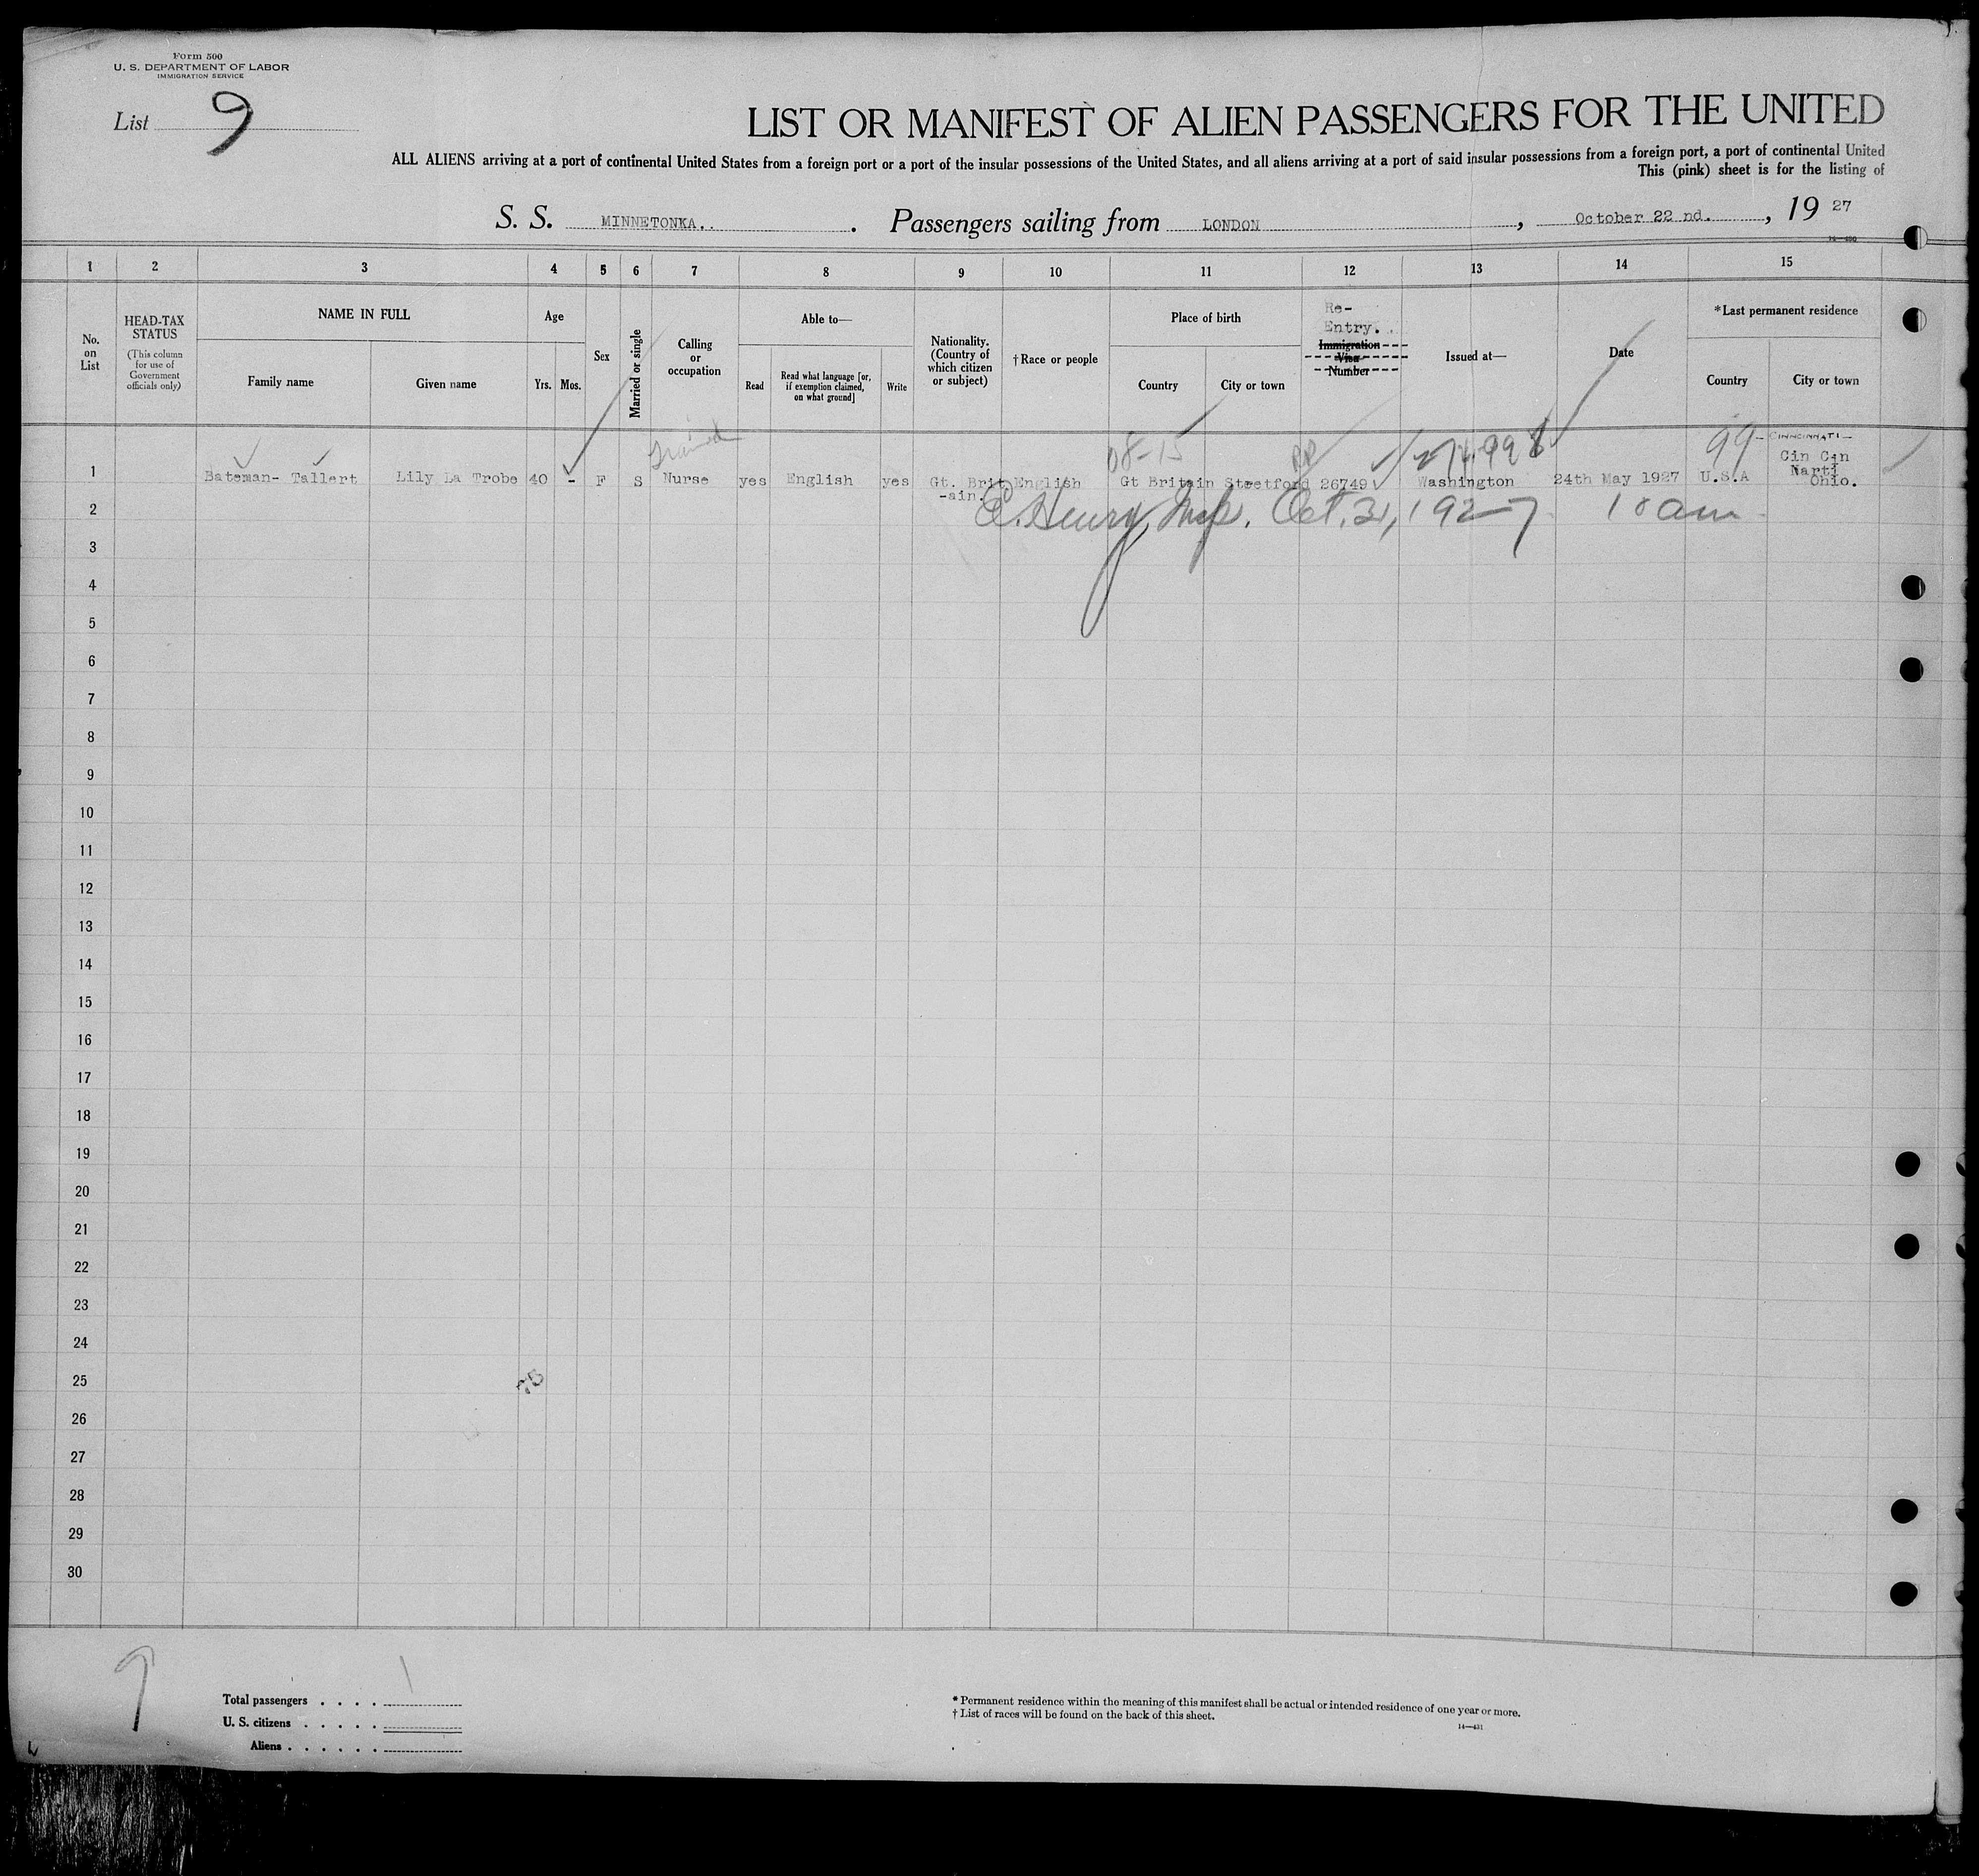 Form 500
U. S. DEPARTMENT OF LABOR
IMMIGRATION SERVICE
List 9
LIST OR MANIFEST OF ALIEN PASSENGERS FOR THE UNITED
ALL ALIENS arriving at a port of continental United States from a foreign port or a port of the insular possessions of the United States, and all aliens arriving at a port of said insular possessions from a foreign port, a port of continental United
This (pink) sheet is for the listing of
S. S. MINNETONKA. . Passengers sailing from LONDON , October 22 nd. , 19 27
1 2 3 4 5 6 7 8 9 10 11 12 13 14 15
No. on List
HEAD-TAX STATUS
(This column for use of Government officials only)
NAME IN FULL
Family name
Given name
Age
Yrs. Mos.
Sex
Married or single
Calling or occupation
Able to—
Read
Read what language [or, if exemption claimed, on what ground]
Write
Nationality. (Country of which citizen or subject)
†Race or people
Place of birth
Country
City or town
Re-Entry.
Immigration Visa Number
Issued at—
Date
*Last permanent residence
Country
City or town
Trained 08-15 99 CINNCINNATI
1 Bateman- Tallert Lily La Trobe 40 - F S Nurse yes English yes Gt. Brit -ain. English Gt Britain Stretford 26749 Washington 24th May 1927 U.S.A Cin Cin Narti Ohio.
2 Henry, Insp. Oct. 31, 1927 10 am
3
4
5
6
7
8
9
10
11
12
13
14
15
16
17
18
19
20
21
22
23
24
25
26
27
28
29
30
9
Total passengers . . . . 1
U. S. citizens . . . . .
Aliens . . . . . .
* Permanent residence within the meaning of this manifest shall be actual or intended residence of one year or more.
† List of races will be found on the back of this sheet.
14—431